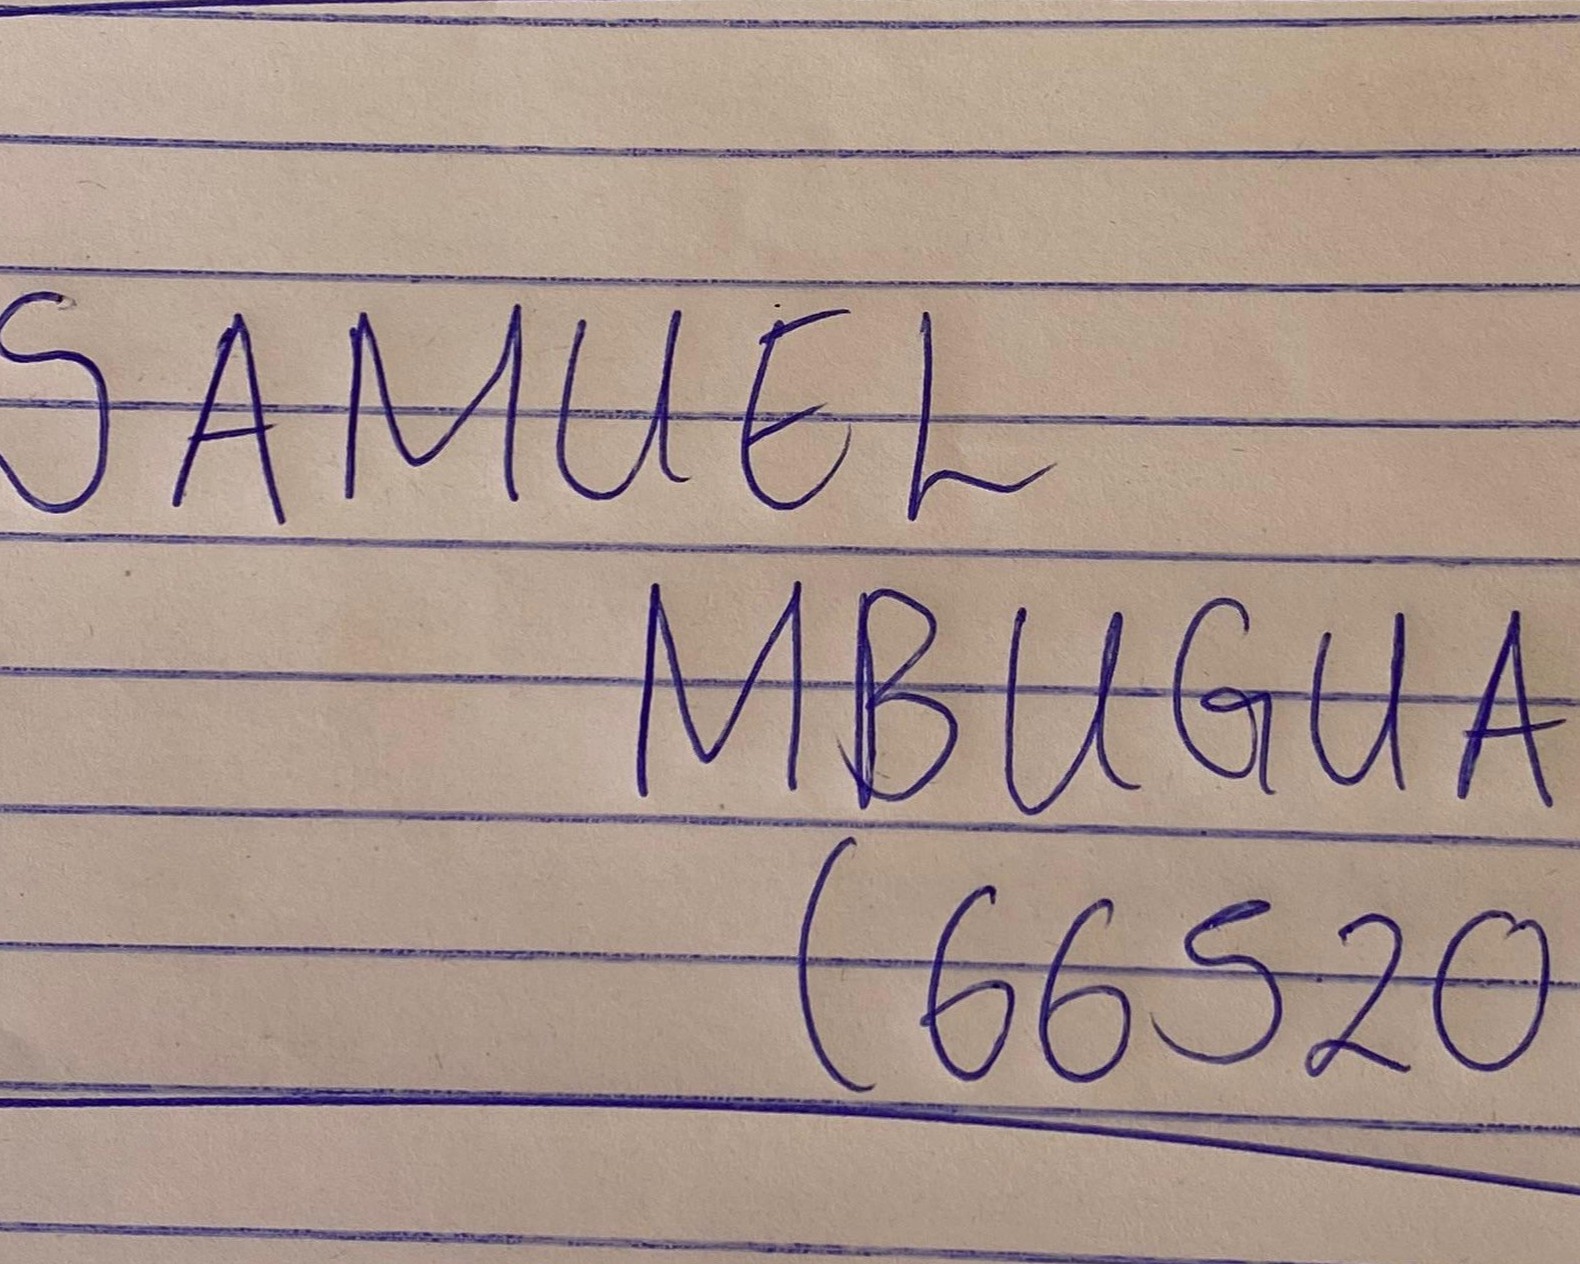 SAMUEL
MBUGUA
(66520